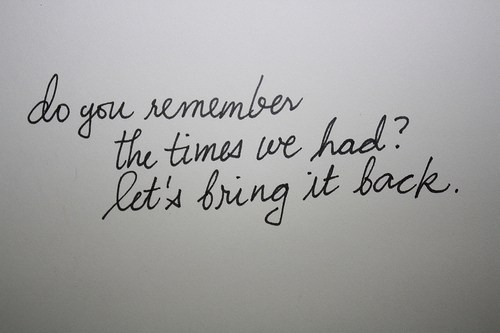 do you remember
the times we had?
let's bring it back.